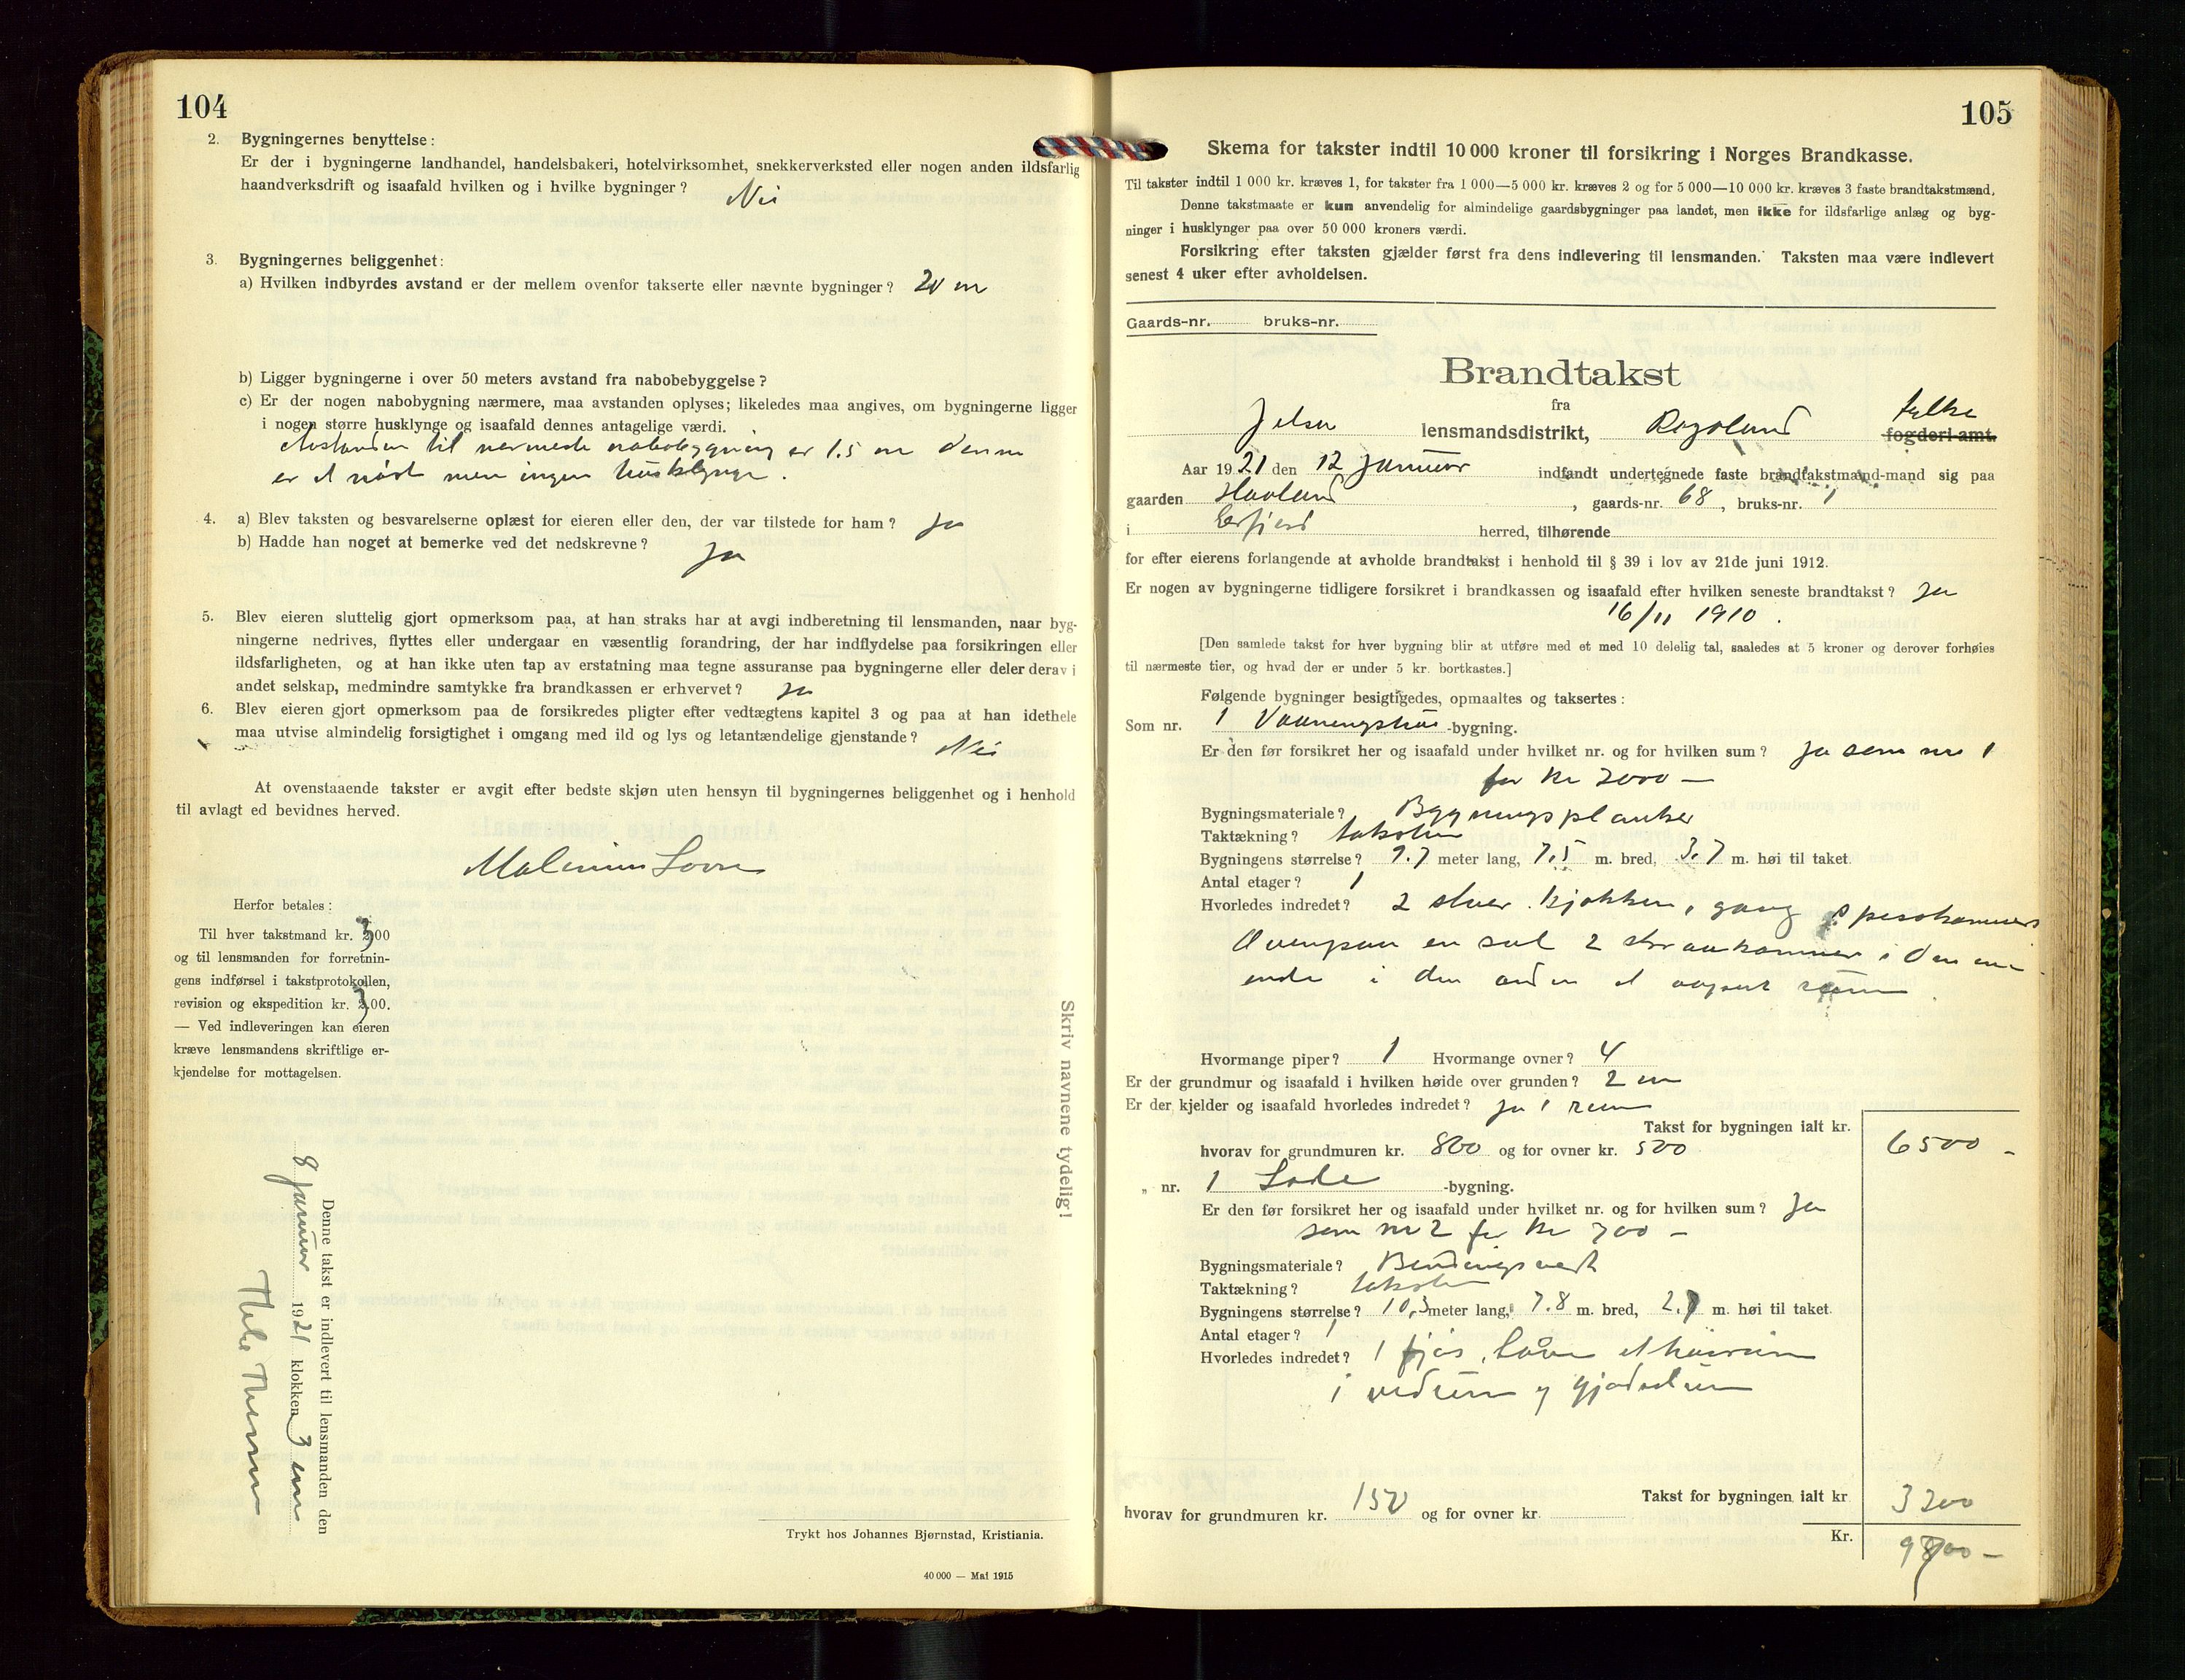 104
2. Bygningernes benyttelse:
Er der i bygningerne landhandel, handelsbakeri, hotelvirksomhet, snekkerverksted eller nogen anden ildsfarlig
haandverksdrift og isaafald hvilken og i hvilke bygninger? Nei
3. Bygningernes beliggenhet:
a) Hvilken indbyrdes avstand er der mellem ovenfor takserte eller nævnte bygninger? 20 m
b) Ligger bygningerne i over 50 meters avstand fra nabobebyggelse?
c) Er der nogen nabobygning nærmere, maa avstanden oplyses; likeledes maa angives, om bygningerne ligger
i nogen større husklynge og isaafald dennes antagelige værdi.
Avstanden til nærmeste nabobygning er 1.5 m denne
er et nøst men ingen husklynge.
4. a) Blev taksten og besvarelserne oplæst for eieren eller den, der var tilstede for ham? Ja
b) Hadde han noget at bemerke ved det nedskrevne? Ja
5. Blev eieren sluttelig gjort opmerksom paa, at han straks har at avgi indberetning til lensmanden, naar byg-
ningerne nedrives, flyttes eller undergaar en væsentlig forandring, der har indflydelse paa forsikringen eller
ildsfarligheten, og at han ikke uten tap av erstatning maa tegne assuranse paa bygningerne eller deler derav i
andet selskap, medmindre samtykke fra brandkassen er erhvervet? Ja
6. Blev eieren gjort opmerksom paa de forsikredes pligter efter vedtægtens kapitel 3 og paa at han idethele
maa utvise almindelig forsigtighet i omgang med ild og lys og letantændelige gjenstande? Nei
At ovenstaaende takster er avgit efter bedste skjøn uten hensyn til bygningernes beliggenhet og i henhold
til avlagt ed bevidnes herved.
Herfor betales:
Til hver takstmand kr. 3,00
og til lensmanden for forretnin-
gens indførsel i takstprotokollen,
revision og ekspedition kr. 3,00.
— Ved indleveringen kan eieren
kræve lensmandens skriftlige er-
kjendelse for mottagelsen.
Denne takst er indlevert til lensmanden den
8 januar 1921 klokken 3 em
Skriv navnene tydelig!
Trykt hos Johannes Bjørnstad, Kristiania.
40 000 — Mai 1915
105
Skema for takster indtil 10 000 kroner til forsikring i Norges Brandkasse.
Til takster indtil 1 000 kr. kræves 1, for takster fra 1 000—5 000 kr. kræves 2 og for 5 000—10 000 kr. kræves 3 faste brandtakstmænd.
Denne takstmaate er kun anvendelig for almindelige gaardsbygninger paa landet, men ikke for ildsfarlige anlæg og byg-
ninger i husklynger paa over 50 000 kroners værdi.
Forsikring efter taksten gjælder først fra dens indlevering til lensmanden. Taksten maa være indlevert
senest 4 uker efter avholdelsen.
Gaards-nr. bruks-nr.
Brandtakst
fra
Jelsa lensmandsdistrikt, Rogaland fylke fogderi-amt.
Aar 1921 den 12 januar indfandt undertegnede faste brandtakstmænd-mand sig paa
gaarden Haaland, gaards-nr. 68, bruks-nr. 1
i Erfjord herred, tilhørende
for efter eierens forlangende at avholde brandtakst i henhold til § 39 i lov av 21de juni 1912.
Er nogen av bygningerne tidligere forsikret i brandkassen og isaafald efter hvilken seneste brandtakst? Ja
16/11 1910.
[Den samlede takst for hver bygning blir at utføre med et med 10 delelig tal, saaledes at 5 kroner og derover forhøies
til nærmeste tier, og hvad der er under 5 kr. bortkastes.]
Følgende bygninger besigtigedes, opmaaltes og taksertes:
Som nr. 1 Vaaningshus -bygning.
Er den før forsikret her og isaafald under hvilket nr. og for hvilken sum? Ja som nr 1
for kr 2000 —
Bygningsmateriale? Bygningsplanker
Taktækning? taksten
Bygningens størrelse? 9.7 meter lang, 7.5 m. bred, 3.7 m. høi til taket.
Antal etager? 1
Hvorledes indredet? 2 stuer. kjøkken, gang spisekammers
Ovenpaa en sal 2 kammer i den ene
ende i den anden et rum
Hvormange piper? 1 Hvormange ovner? 4
Er der grundmur og isaafald i hvilken høide over grunden? 2 m
Er der kjelder og isaafald hvorledes indredet? Ja 1 rum
Takst for bygningen ialt kr.
hvorav for grundmuren kr. 800 og for ovner kr. 500 6500 -
„ nr. 1 Lade -bygning.
Er den før forsikret her og isaafald under hvilket nr. og for hvilken sum? Ja
som nr 2 for kr 700 —
Bygningsmateriale? Bindingsverk
Taktækning? taksten
Bygningens størrelse? 10,3 meter lang, 7.8 m. bred, 2.7 m. høi til taket.
Antal etager? 1
Hvorledes indredet? 1 fjøs, låve et høirum
1 vedrum og gjødselrum
Takst for bygningen ialt kr. 3200
hvorav for grundmuren kr. 150 og for ovner kr.
Kr. 9700 —